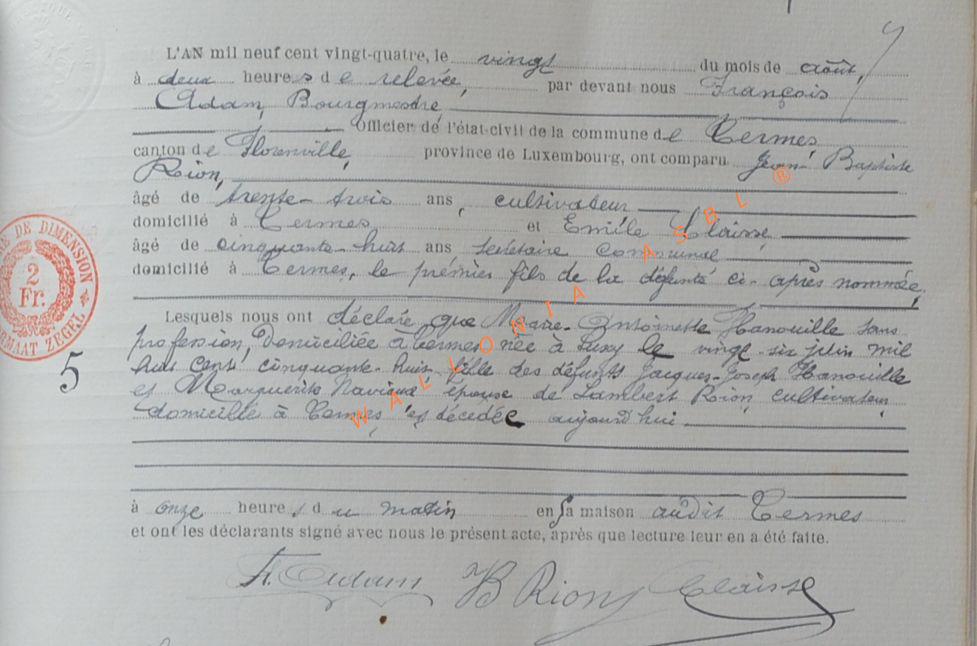 L'AN mil neuf cent vingt-quatre, le vingt du mois de août,
à deux heures de relevée, par devant nous François
Adam, Bourgmestre
Officier de l'état-civil de la commune de Termes,
canton de Florenville, province de Luxembourg, ont comparu Jean Baptiste
Rion,
âgé de trente-trois ans, cultivateur
domicilié à Termes et Emile Claisse,
âgé de cinquante-huit ans secrétaire communal
domicilié à Termes, le prémier fils de la défunte ci-après nommée,
Lesquels nous ont déclaré que Marie-Antoinette Hanouille sans
profession, domiciliée à Termes née à Suxy le vingt-six juin mil
huit cent cinquante-huit fille des défunts Jacques-Joseph Hanouille
et Marguerite épouse de Lambert Rion, cultivateur
domicilié à Termes, est décédée aujourd'hui
à onze heures du matin en sa maison audit Termes
et ont les déclarants signé avec nous le présent acte, après que lecture leur en a été faite.
F. Adam JB Rion Claisse
5
RE DE DIMENSION
2
Fr.
MAAT ZEGEL
WALLONIA ASBL ®